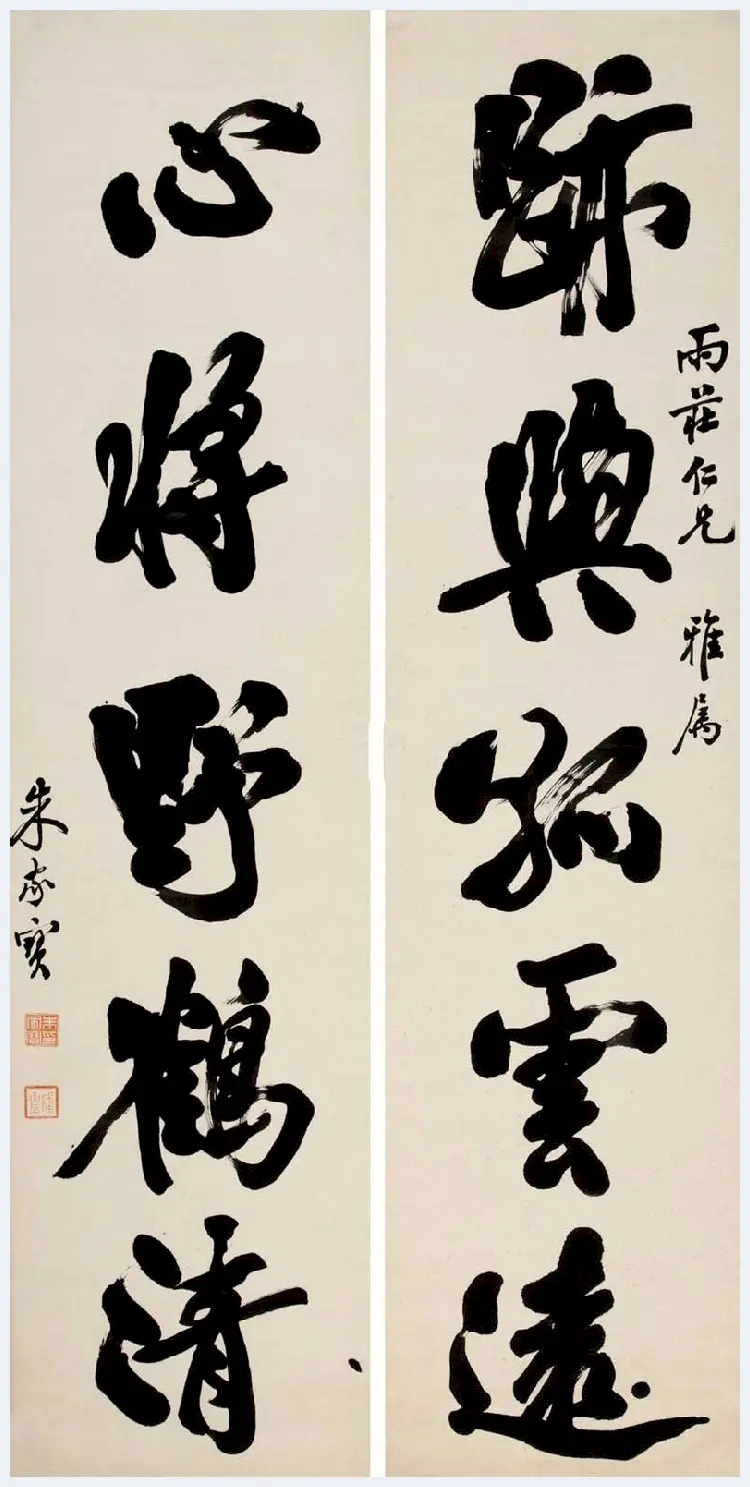 跡與孤雲遠
雨莊仁兄 雅屬
心將野鶴清
朱家寶